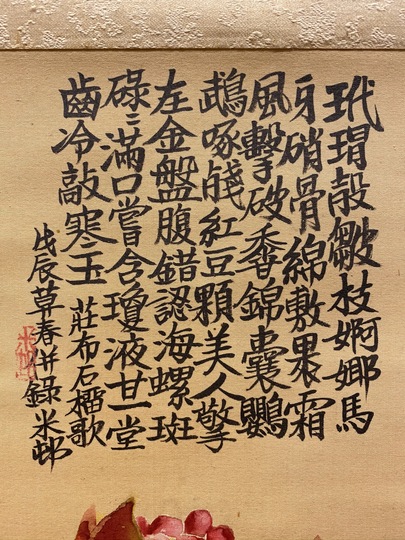 玳瑁殼皺枝婀娜馬
牙硝骨綿敷裹霜
風擊破香錦囊鸚
鵡啄殘紅豆顆美人擎
左金盤腹錯認海螺斑
碌〻滿口嘗含瓊液甘一堂
齒冷敲寒玉 莊布石榴歌
戊辰草春并錄米邨